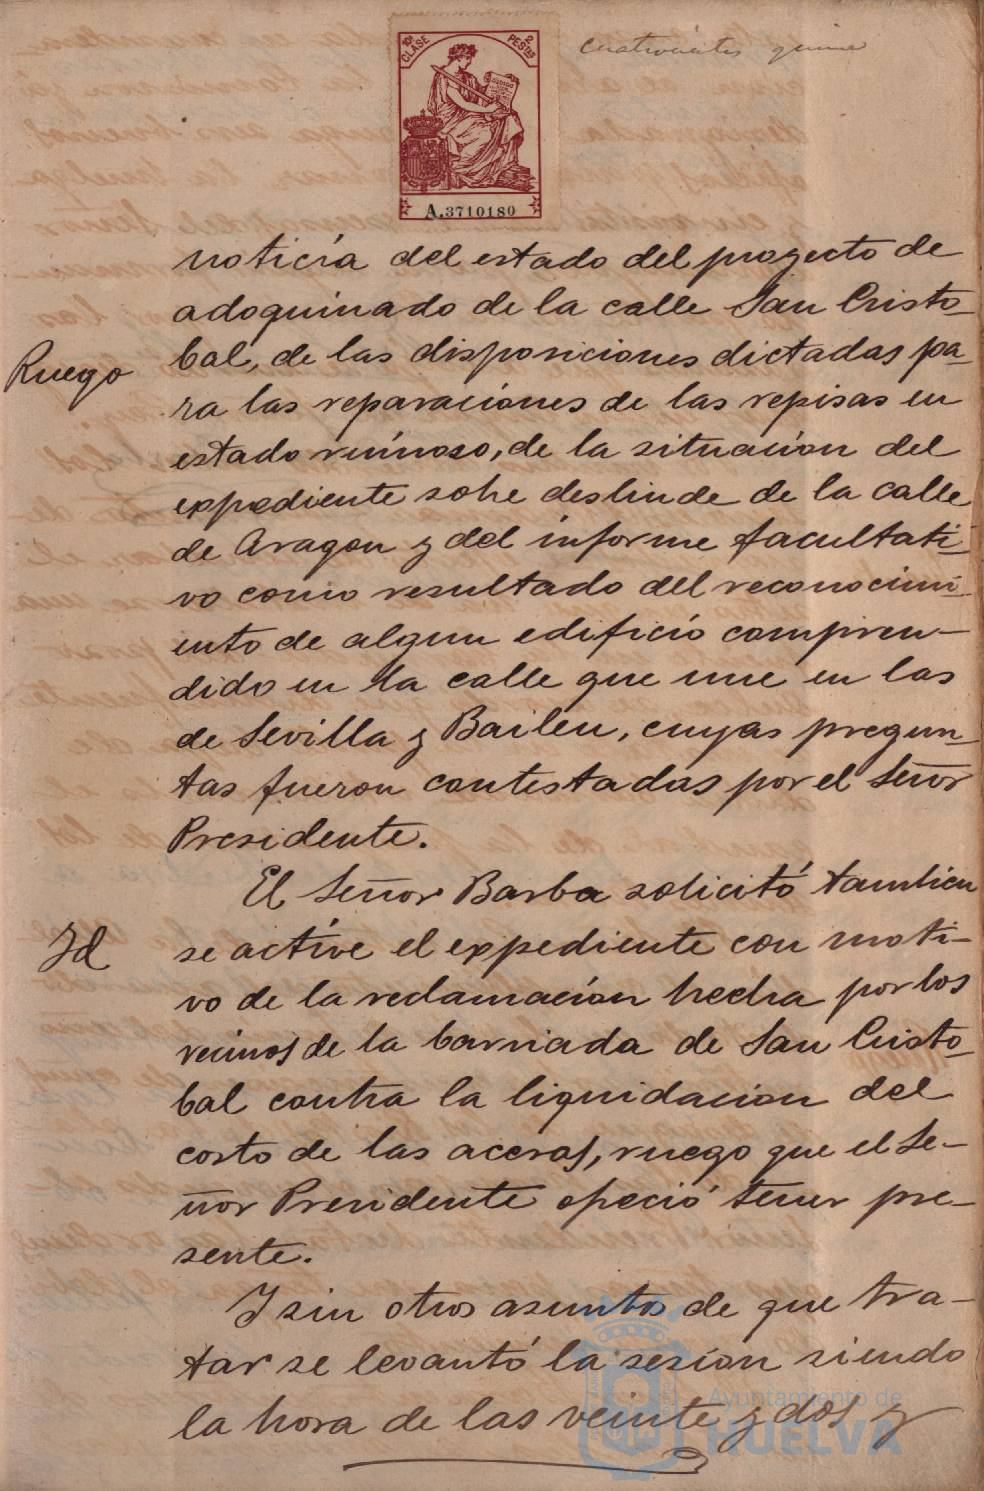 10ª CLASE
2 PESTAS
cuatrocientos quince
A.3710180
noticia del estado del proyecto de
adoquinado de la calle San Cristo-
Ruego
bal, de las disposiciones dictadas pa-
ra las reparaciones de las repisas en
estado ruinoso, de la situacion del
expediente sobre deslinde de la calle
de Aragon y del informe facultati-
vo como resultado del reconocimi-
ento de algun edificio compren-
dido en la calle que une en las
de Sevilla y Bailen, cuyas pregun-
tas fueron contestadas por el Señor
Presidente.
El Señor Barba solicitó tambien
Id
se active el expediente con moti-
vo de la reclamación hecha por los
vecinos de la barriada de San Cristo-
bal contra la liquidacion del
costo de las aceras, ruego que el Se-
ñor Presidente ofreció tener pre-
sente.
Y sin otros asuntos de que tra-
tar se levantó la sesión siendo
la hora de las veinte y dos y
Ayuntamiento de
HUELVA